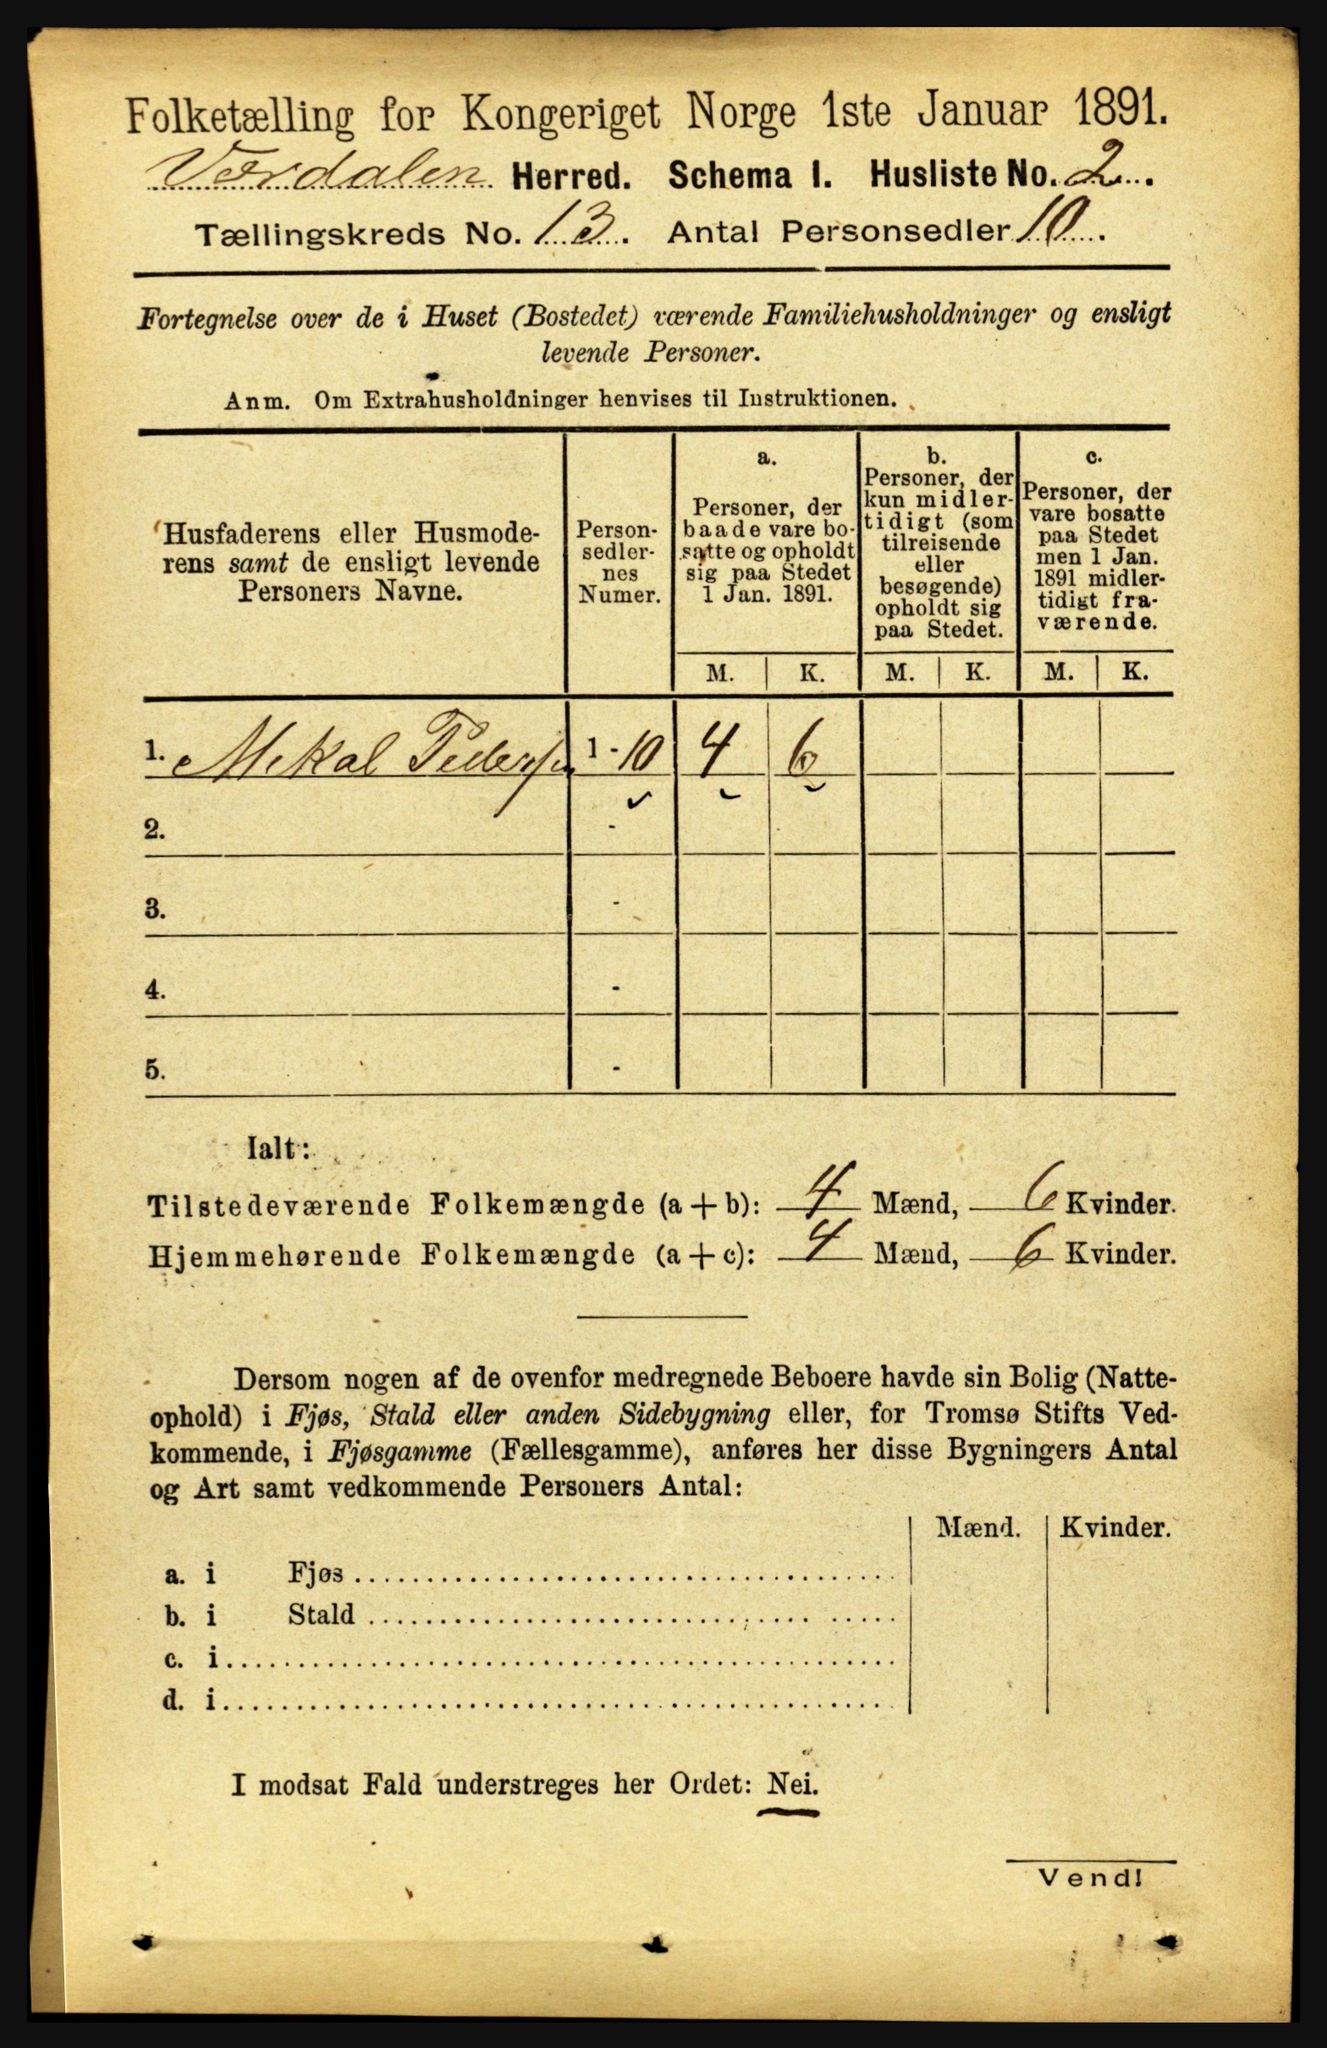 Folketælling for Kongeriget Norge 1ste Januar 1891.
Værdalen Herred. Schema I. Husliste No. 2.
Tællingskreds No. 13. Antal Personsedler 10.
Fortegnelse over de i Huset (Bostedet) værende Familiehusholdninger og ensligt
levende Personer.
Anm. Om Extrahusholdninger henvises til Instruktionen.
Husfaderens eller Husmode-
rens samt de ensligt levende
Personers Navne.
Person-
sedler-
nes
Numer.
a.
Personer, der
baade vare bo-
satte og opholdt
sig paa Stedet
1 Jan. 1891.
b.
Personer, der
kun midler-
tidigt (som
tilreisende
eller
besøgende)
opholdt sig
paa Stedet.
c.
Personer, der
vare bosatte
paa Stedet
men 1 Jan.
1891 midler-
tidigt fra-
værende.
M. K. M. K. M. K.
1. Mikal Pedersen 1 - 10 4 6
2. -
3. -
4. -
5. -
Ialt:
Tilstedeværende Folkemængde (a + b): 4 Mænd, 6 Kvinder.
Hjemmehørende Folkemængde (a + c): 4 Mænd, 6 Kvinder.
Dersom nogen af de ovenfor medregnede Beboere havde sin Bolig (Natte-
ophold) i Fjøs, Stald eller anden Sidebygning eller, for Tromsø Stifts Ved-
kommende, i Fjøsgamme (Fællesgamme), anføres her disse Bygningers Antal
og Art samt vedkommende Personers Antal:
Mænd. Kvinder.
a. i Fjøs
b. i Stald
c. i
d. i
I modsat Fald understreges her Ordet: Nei.
Vend!